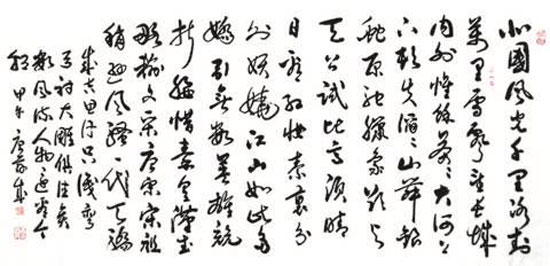 北國風光千里冰封
萬里雪飄望長城
内外惟餘莽々大河上
下頓失滔々山舞銀
蛇原馳臘象欲与
天公試比高須晴
日看紅妝素裹分
外妖嬈江山如此多
嬌引無數英雄競
折腰惜秦皇漢武
略輸文采唐宗宋祖
稍遜風騷一代天驕
成吉思汗只識彎
弓射大雕俱往矣
數風流人物還看今
朝 甲午